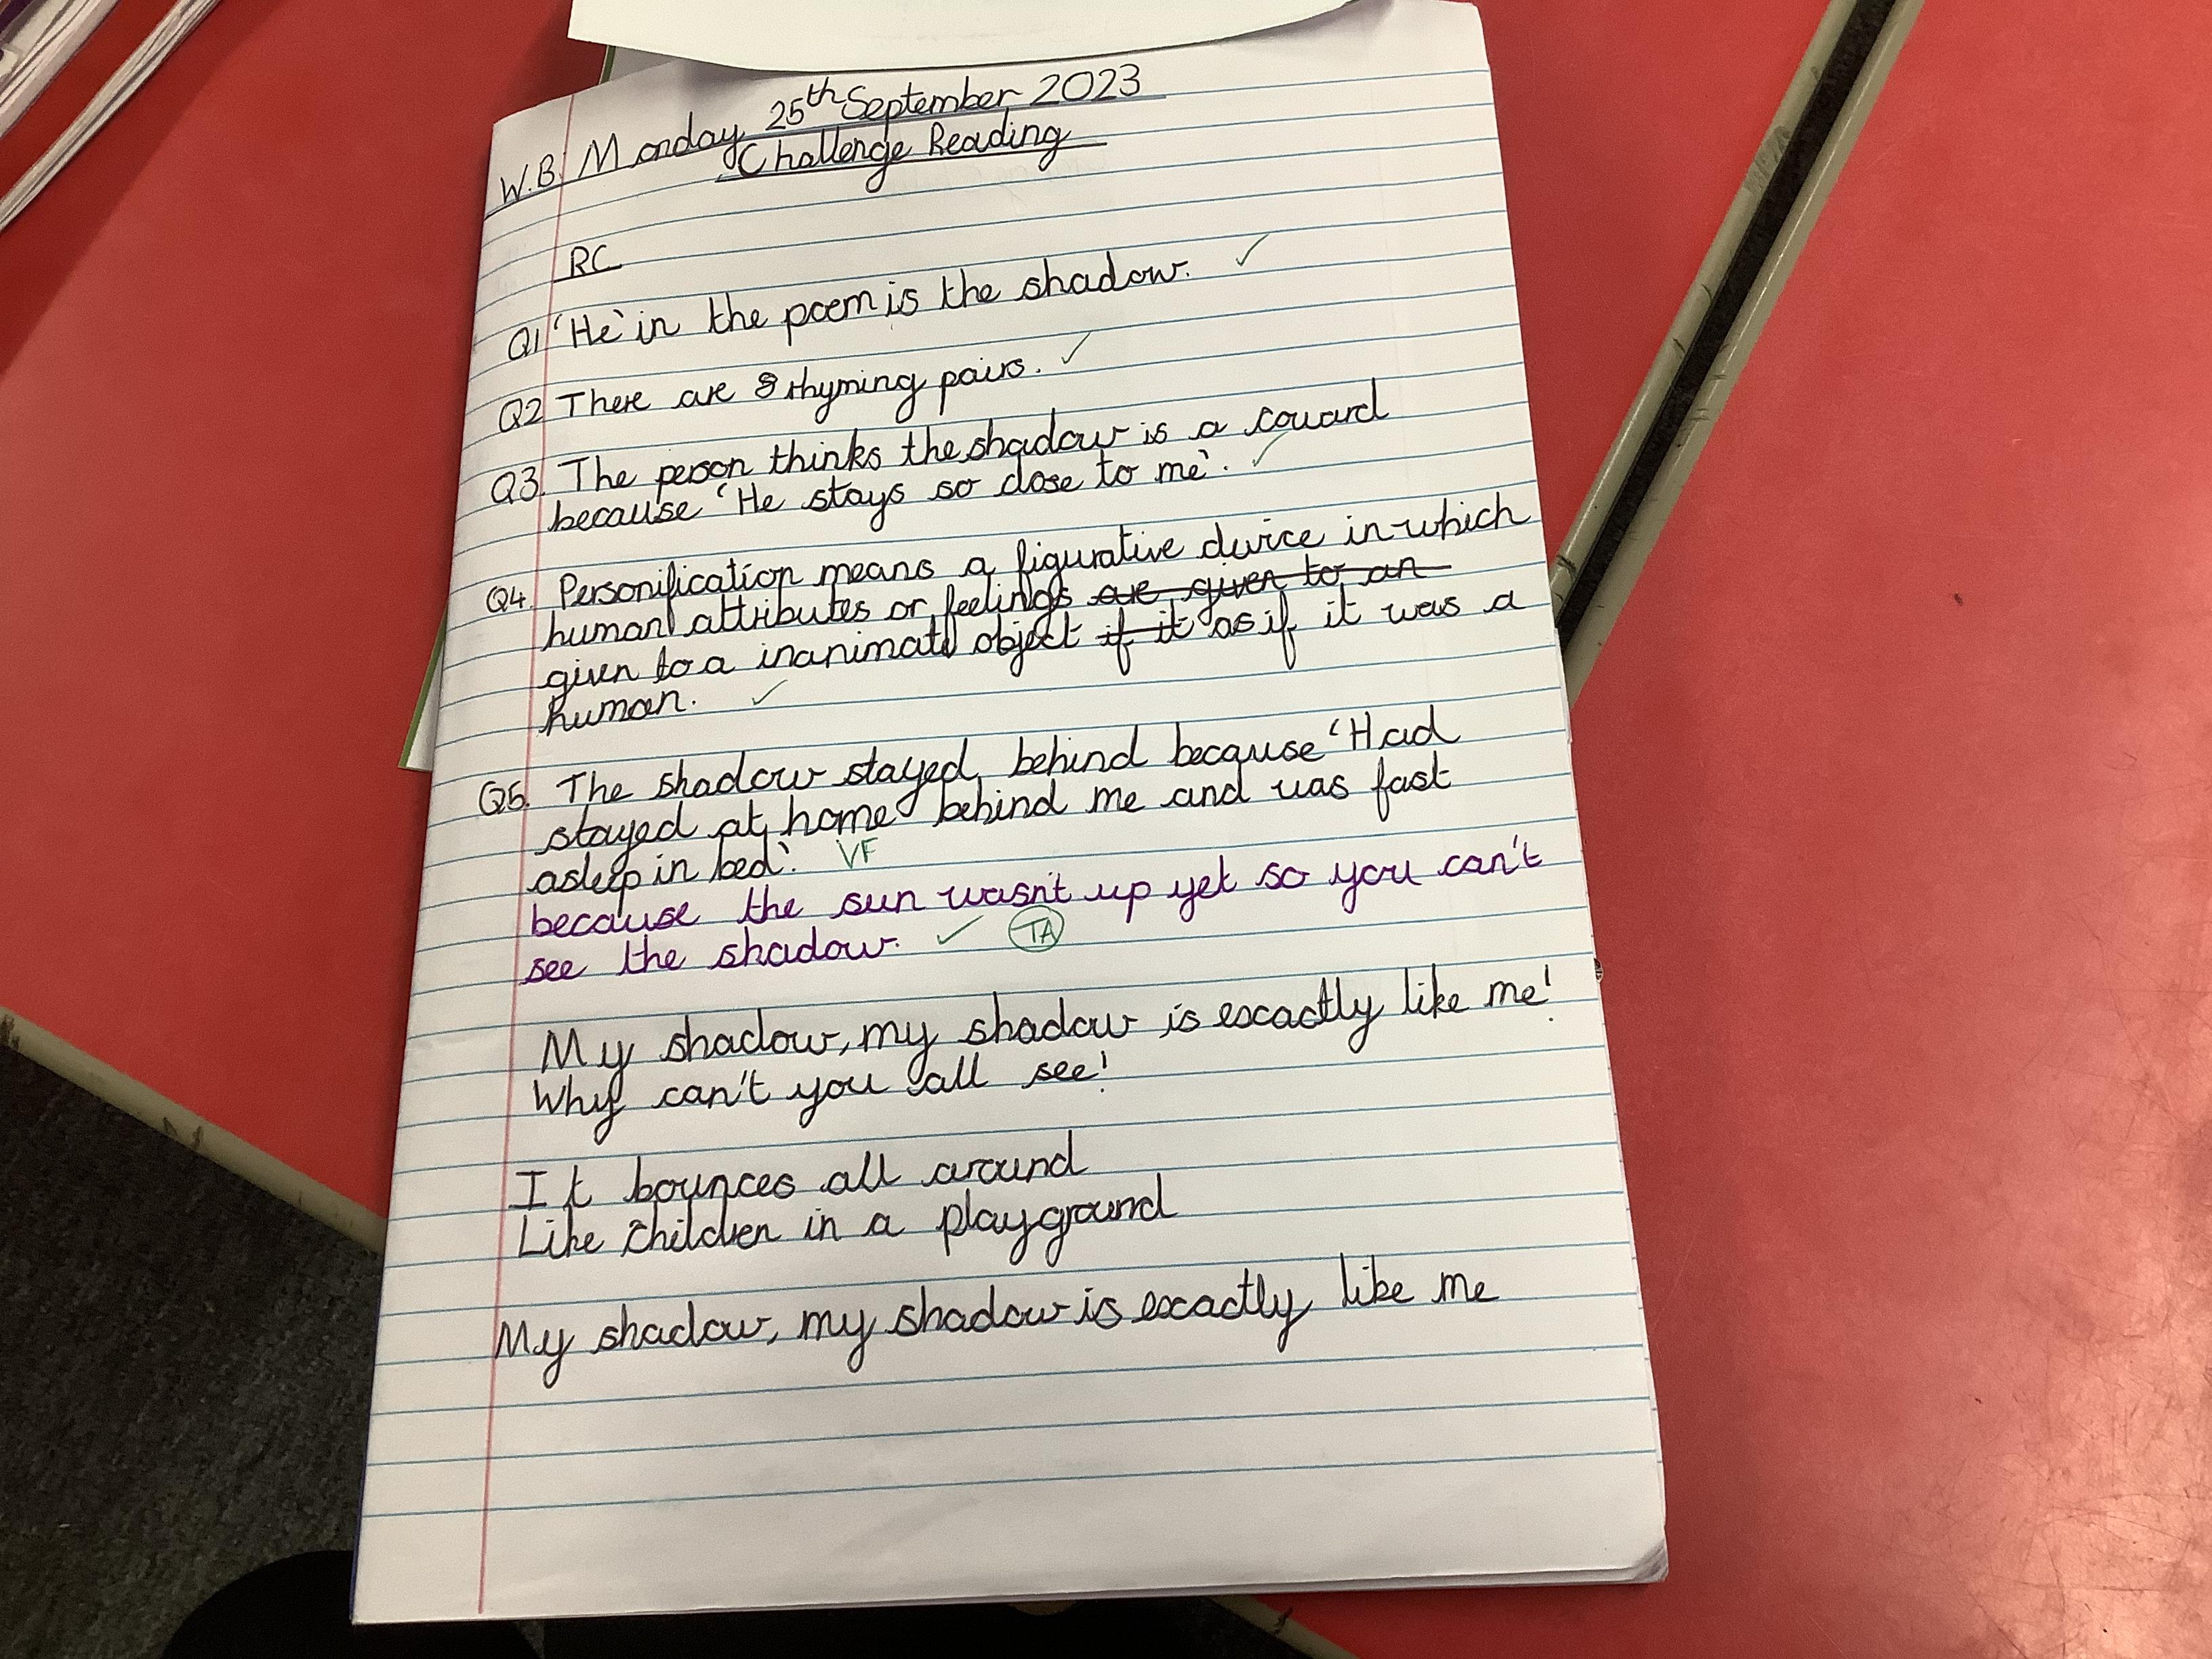 W.B. Monday 25th September 2023
Challenge Reading
RC
Q1 'He' in the poem is the shadow. ✓
Q2 There are 8 rhyming pairs. ✓
Q3. The person thinks the shadow is a coward
because 'He stays so close to me'. ✓
Q4. Personification means a figurative device in which
human attributes or feelings are given to an
given to a inanimate object if it as if it was a
human. ✓
Q5. The shadow stayed behind because 'Had
stayed at home behind me and was fast
asleep in bed'. VF
because the sun wasn't up yet so you can't
see the shadow. ✓ TA
My shadow, my shadow is excactly like me!
Why can't you all see!
It bounces all around
Like children in a playground
My shadow, my shadow is excactly like me